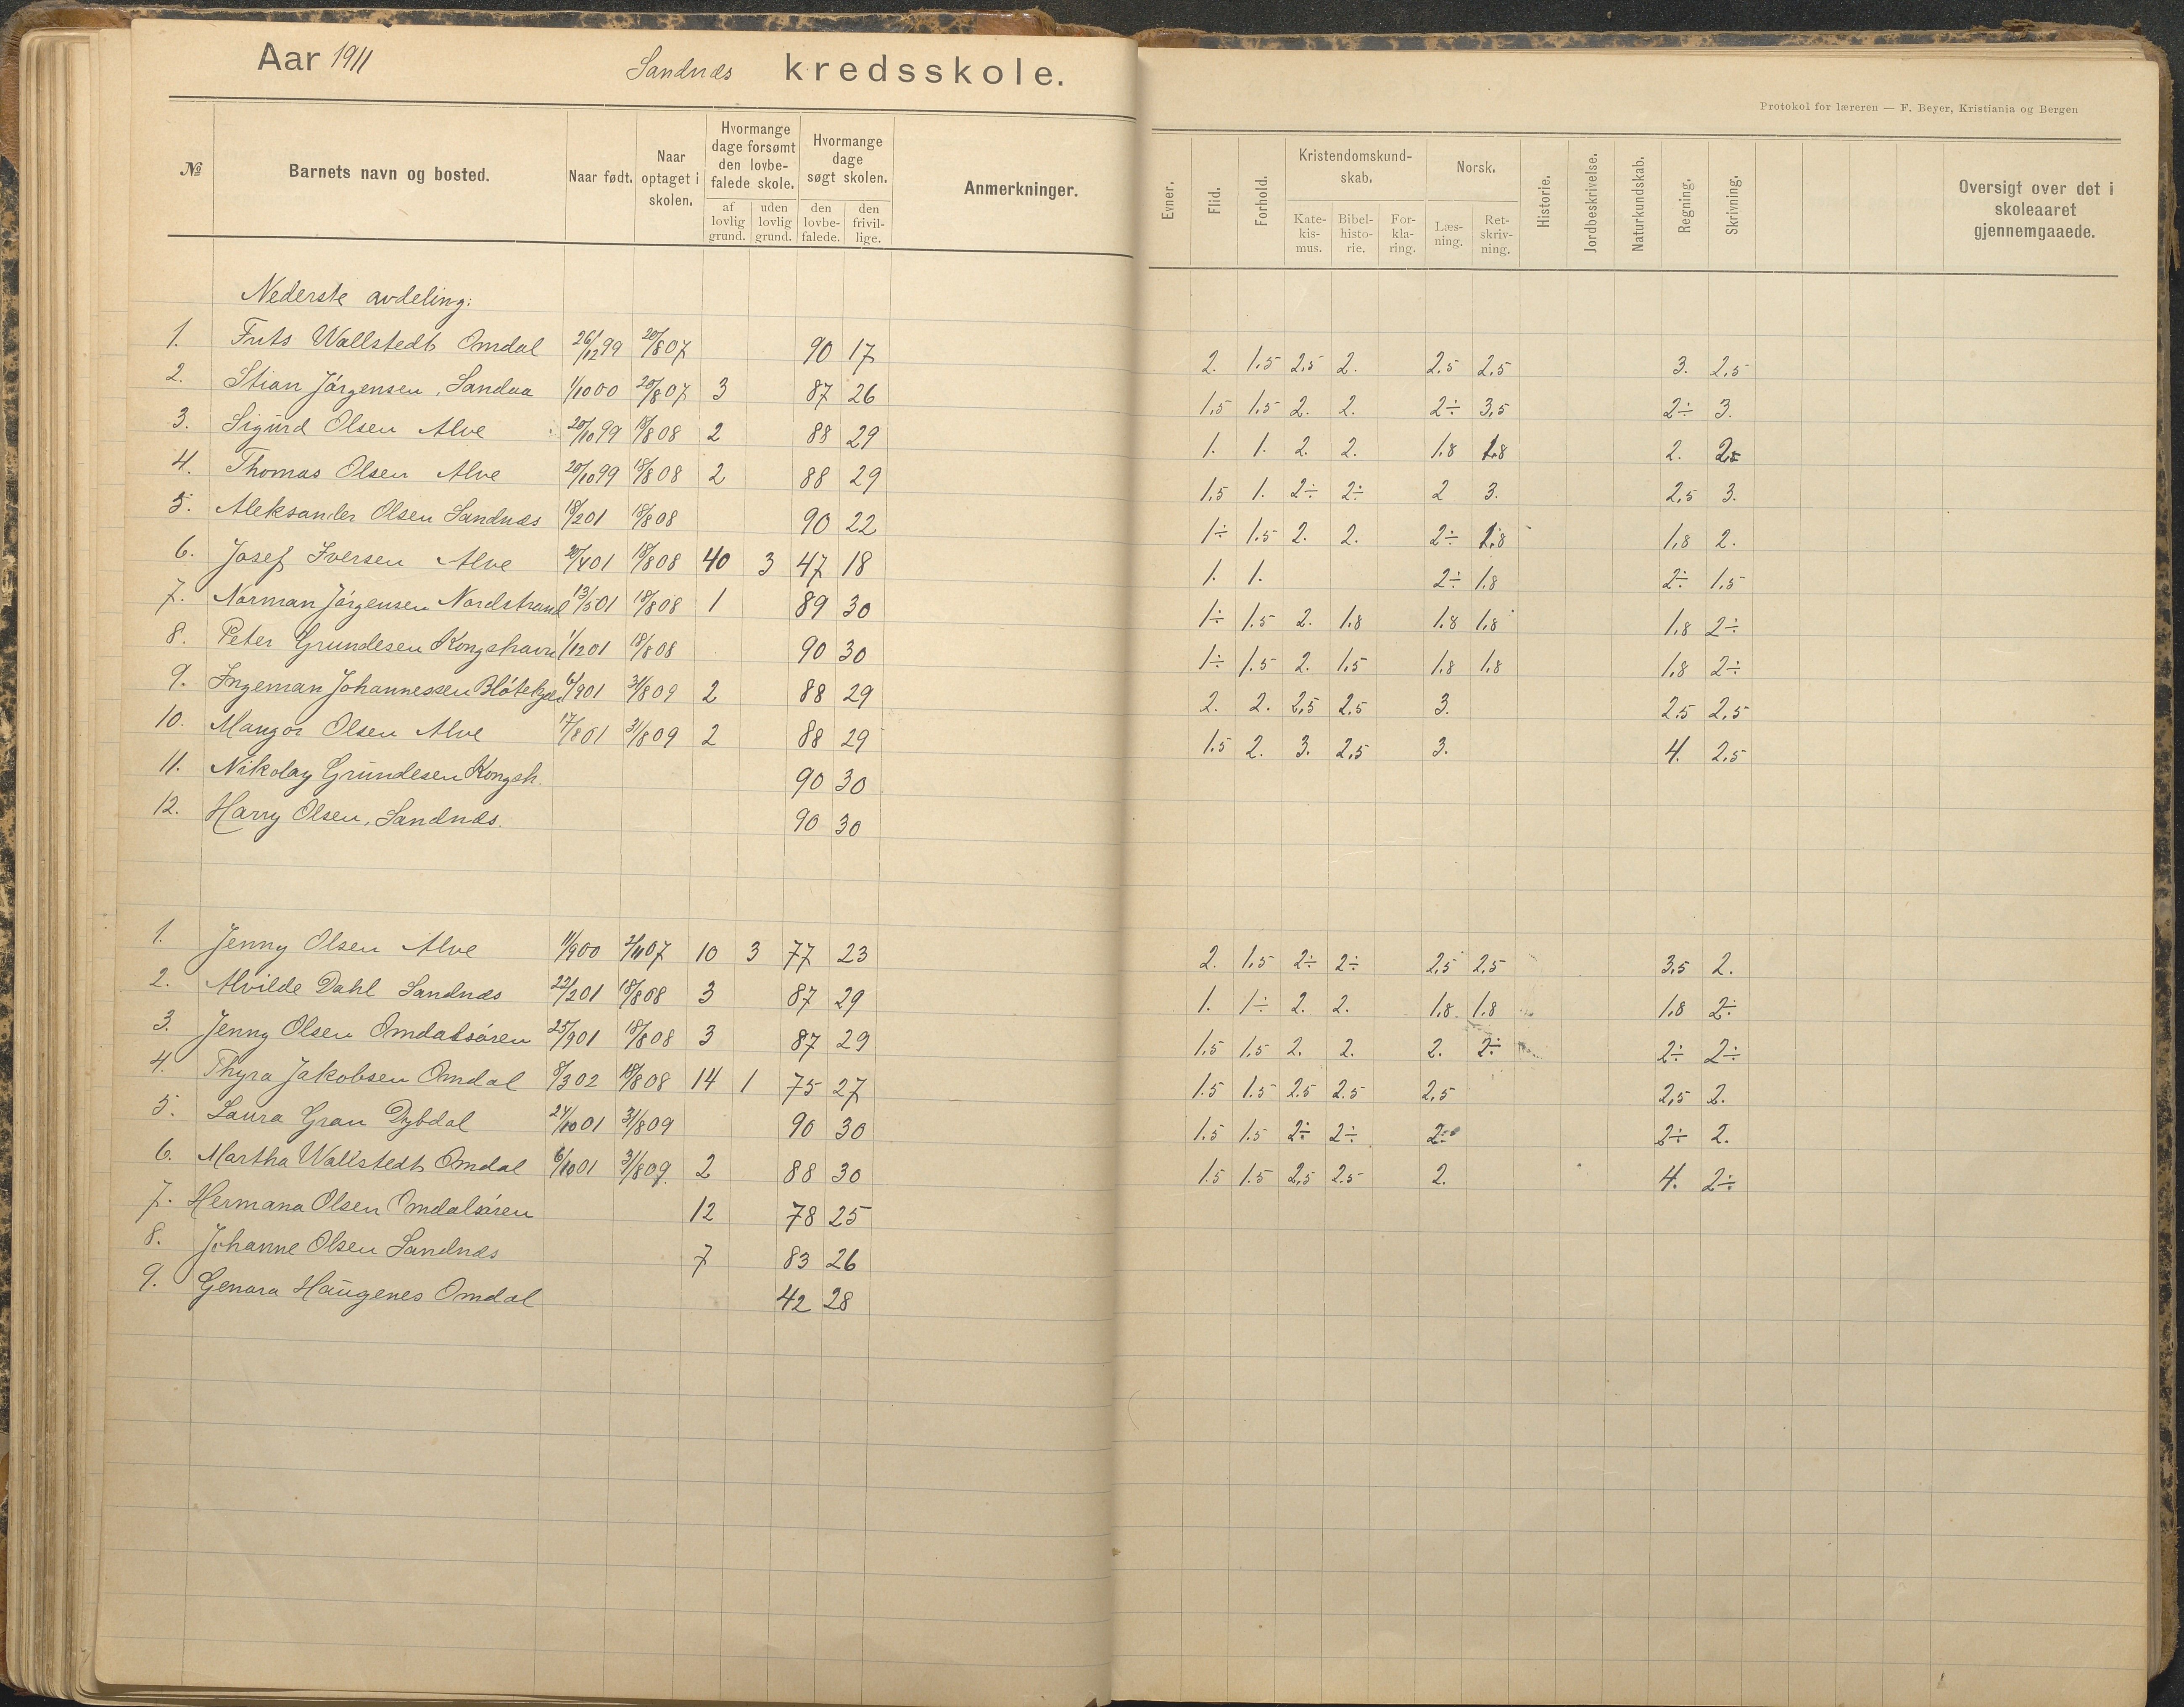 Aar 1911 Sandnæs kredsskole.
Protokol for læreren — F. Beyer, Kristiania og Bergen
№ Barnets navn og bosted. Naar født. Naar optaget i skolen. Hvormange dage forsømt den lovbefalede skole. af lovlig grund. uden lovlig grund. Hvormange dage søgt skolen. den lovbefalede. den frivillige. Anmerkninger. Evner. Flid. Forhold. Kristendomskundskab. Katekismus. Bibelhistorie. Forklaring. Norsk. Læsning. Retskrivning. Historie. Jordbeskrivelse. Naturkundskab. Regning. Skrivning. Oversigt over det i skoleaaret gjennemgaaede.
Nederste avdeling:
1. Frits Wallstedt Omdal 26/12 99 20/8 07 90 17 2. 1.5 2.5 2. 2.5 2.5 3. 2.5
2. Stian Jörgensen, Sandaa 1/10 00 20/8 07 3 87 26 1.5 1.5 2. 2. 2÷ 3.5 2÷ 3.
3. Sigurd Olsen Alve 20/10 99 18/8 08 2 88 29 1. 1. 2. 2. 1.8 1.8 2.
4. Thomas Olsen Alve 20/10 99 18/8 08 2 88 29 1.5 1. 2÷ 2÷ 2 3. 2.5 3.
5. Aleksander Olsen Sandnæs 18/2 01 18/8 08 90 22 1÷ 1.5 2. 2. 2÷ 1.8 1.8 2.
6. Josef Iversen Alve 20/4 01 18/8 08 40 3 47 18 1. 1. 2÷ 1.8 2÷ 1.5
7. Norman Jörgensen Nordstrand 13/5 01 18/8 08 1 89 30 1÷ 1.5 2. 1.8 1.8 1.8 1.8 2÷
8. Peter Grundesen Kongshavn 1/12 01 18/8 08 90 30 1÷ 1.5 2. 1.5 1.8 1.8 1.8 2÷
9. Ingeman Johannessen 6/9 01 31/8 09 2 88 29 2. 2. 2.5 2.5 3. 2.5 2.5
10. Mangor Olsen Alve 17/8 01 31/8 09 2 88 29 1.5 2. 3. 2.5 3. 4. 2.5
11. Nikolay Grundesen Kongsh. 90 30
12. Harry Olsen, Sandnæs. 90 30
1. Jenny Olsen Alve 11/9 00 2/11 07 10 3 77 23 2. 1.5 2÷ 2÷ 2.5 2.5 3.5 2.
2. Alvilde Dahl Sandnæs 22/2 01 18/8 08 3 87 29 1. 1÷ 2. 2. 1.8 1.8 1.8 2÷
3. Jenny Olsen Omdalsören 25/9 01 18/8 08 3 87 29 1.5 1.5 2. 2. 2. 2÷ 2÷ 2÷
4. Thyra Jakobsen Omdal 8/3 02 18/8 08 14 1 75 27 1.5 1.5 2.5 2.5 2.5 2.5 2.
5. Laura Gran Dybdal 24/10 01 31/8 09 90 30 1.5 1.5 2÷ 2÷ 2÷ 2÷ 2.
6. Martha Wallstedt Omdal 6/10 01 31/8 09. 2 88 30 1.5 1.5 2.5 2.5 2. 4. 2÷
7. Hermana Olsen Omdalsören 12 78 25
8. Johanne Olsen Sandnæs 7 83 26
9. Genora Haugenes Omdal 42 28